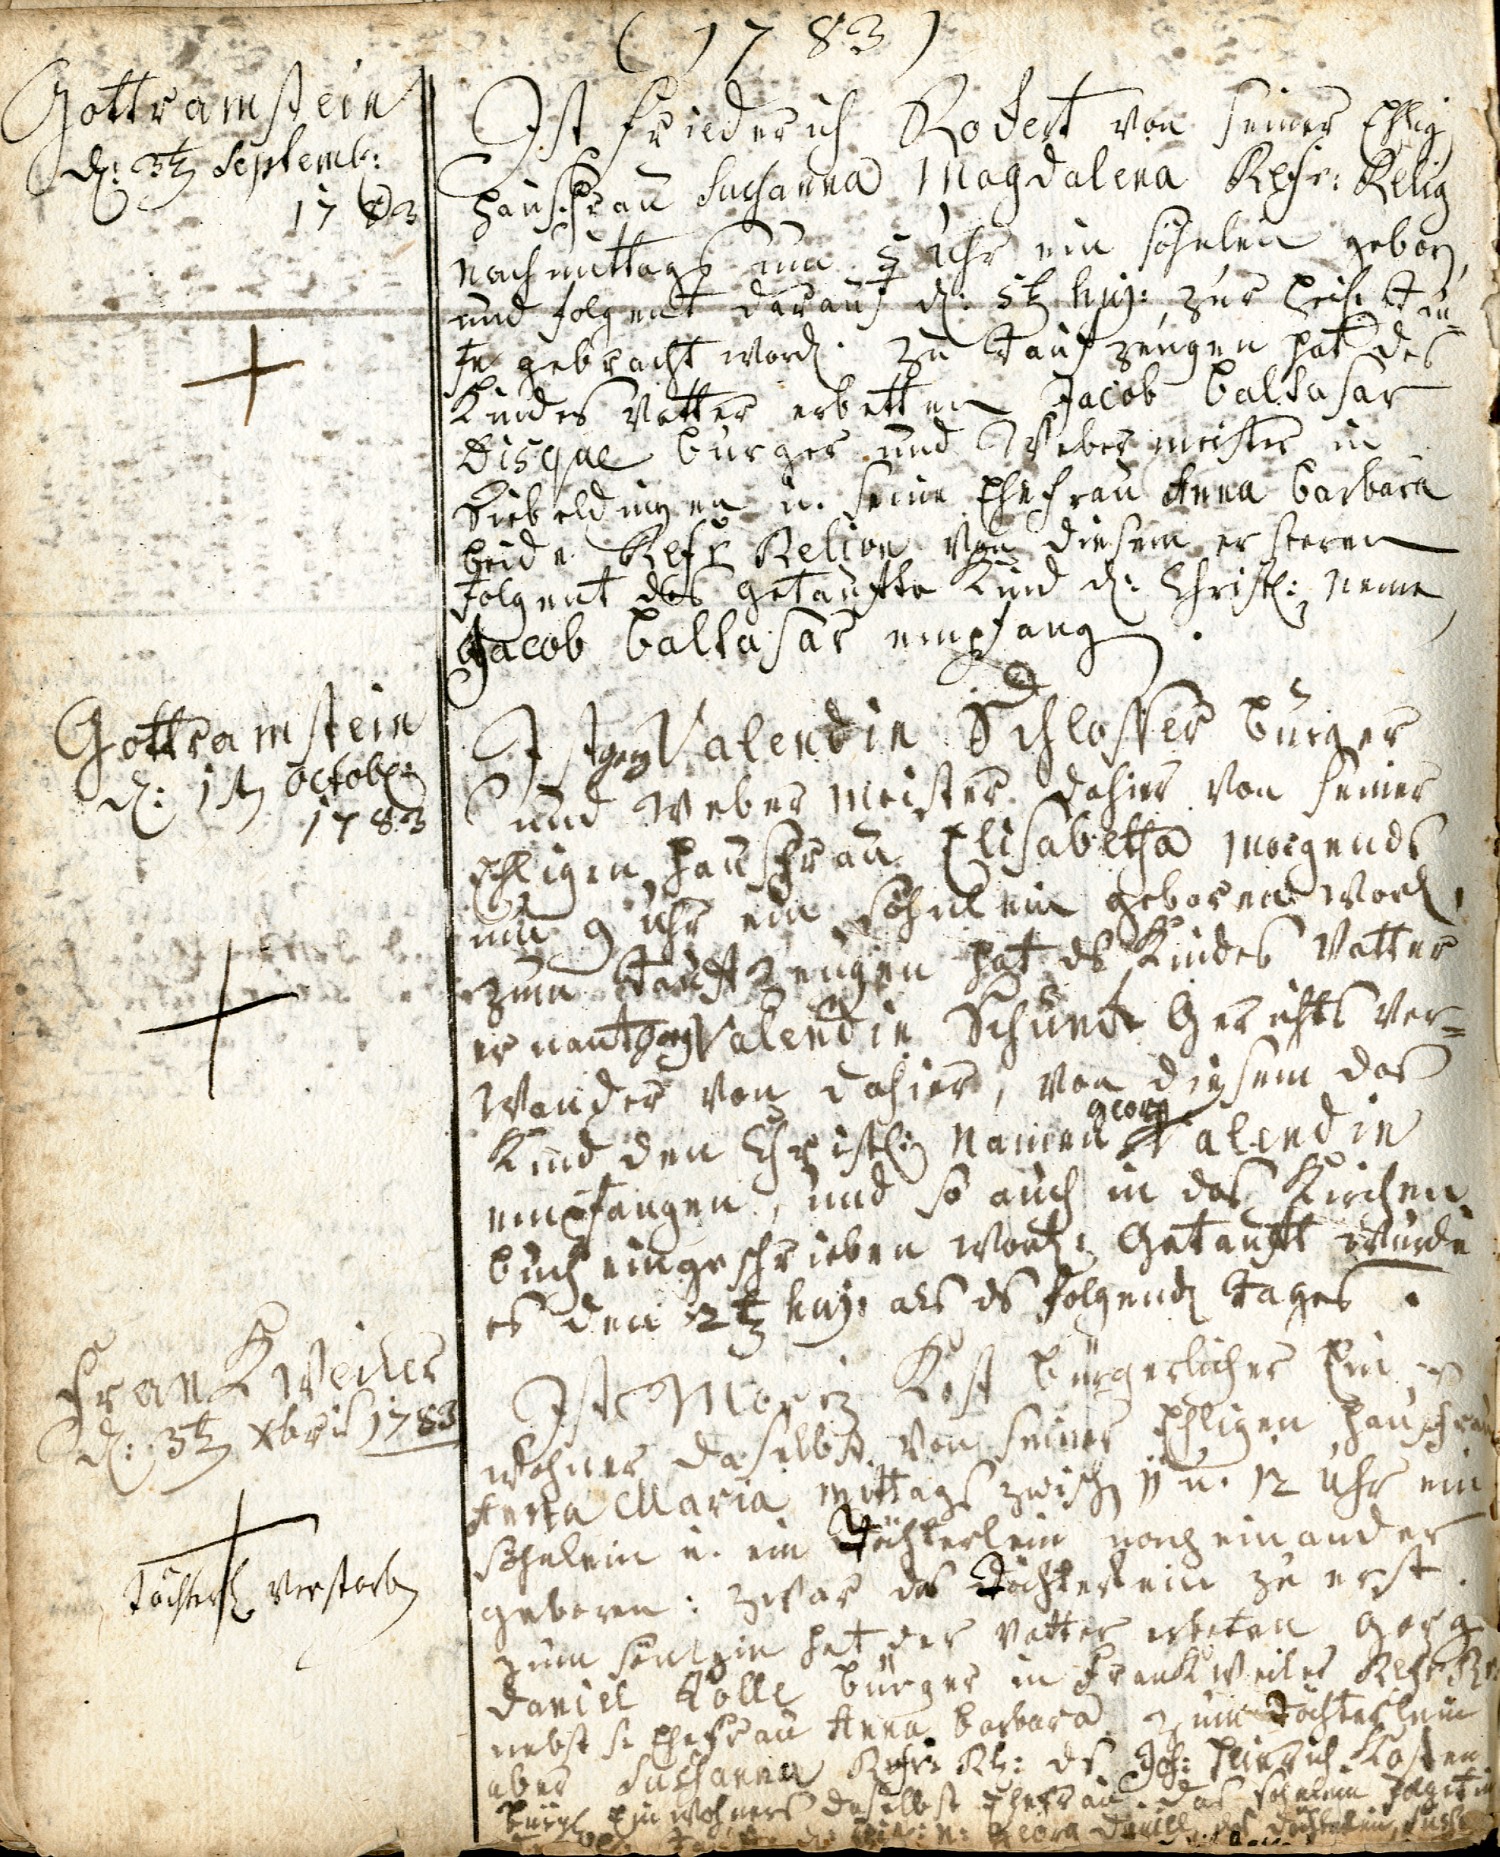 ( 1783 )
Gottramstein
d: 3t Septemb:
1783
Ist Friederich Rodert von seiner Ehlig
Hausfrau Susanna Magdalena Refr: Relig
Nachmittags um 5 Uhr ein söhnlein gebor
und folgent darauf d: 5t huj: zur heil: Tau
fe gebracht word. Zu Taufzeugen hat des
Kindes Vatter erbetten Jacob Baltasar
Disque burger und Webermeister in
Siebeldingen u. seine Ehefrau Anna Barbara
beide Refr Relion von diesem ersteren
folgent das getaufte Kind d: Christl: Neme
Jacob Baltasar empfang.
Gottramstein
d: 1t October
1783
Ist georg Valendin Schlosser burger
und Weber Meister dahier von seiner
Ehligen Hausfrau Elisabetha morgends
um 9 Uhr ein söhnlein geboren word,
zum Taufzeugen hat ds Kindes Vatter
ernant georg Valendin Schunck Gerichts Ver-
Wander von dahier, von diesem das
Kind den Christl: Namen georg Valendin
empfangen, und so auch in das Kirchen
buch eingeschrieben word: Getauft wurde
es den 2t huj: als ds folgend Tages.
Frankweiler
d: 3t Xbris 1783
Töchterl Verstorb
Ist Moriz Kost bürgerlicher Ein
wohner daselbst von seiner Ehligen Hausfrau
Anna Maria mittags zwisch 11 u. 12 Uhr ein
söhnlein u. ein Töchterlein nach einander
geboren: zwar das Töchterlein zu erst.
zum sönlein hat der Vatter erbeten Georg
Daniel Kölle bürger in Frankweiler Refr R
nebst s. Ehefrau Anna Barbara. Zum Töchterlein
aber Susanna Refr: Rl: ds Joh: Heinrich Kosten
bürgl Einwohners daselbst Ehefrau. das söhnlein
Georg Daniel, das Töchterlein